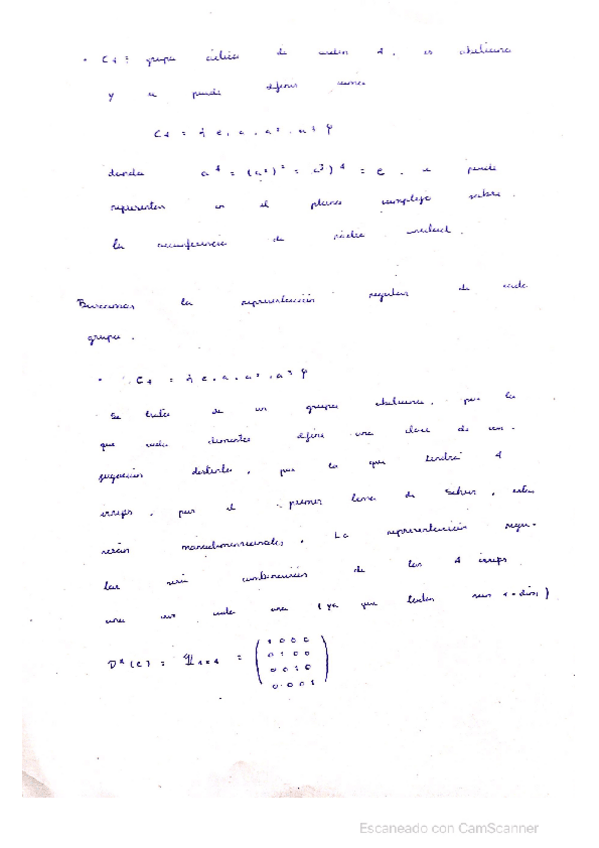 • C4 : grupo cíclico de orden 4, es abeliano
y se puede definir como
C4 = { e, a, a², a³ }
donde a⁴ = (a²)² = a³)⁴ = e. se puede
representar en el plano complejo sobre
la circunferencia de radio unidad.
Buscamos la representación regular de cada
grupo.
• C4 = { e, a, a², a³ }
Se trata de un grupo abeliano, por lo
que cada elemento define una clase de con-
jugación distinta, por lo que tendrá 4
irreps, por el primer lema de Schur, estas
serán monodimensionales. La representación regu-
lar será combinación de las 4 irreps
una vez cada una (ya que todas son 1-dim)
Dᴿ(e) = 𝟙4x4 = ( 1 0 0 0
0 1 0 0
0 0 1 0
0 0 0 1 )
Escaneado con CamScanner